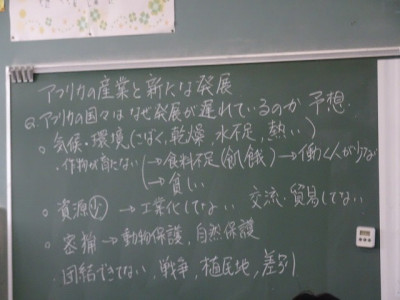 アフリカの産業と新たな発展
Q.アフリカの国々はなぜ発展が遅れているのか 予想.
○気候・環境(さばく,乾燥,水不足,熱い)
・作物が育たない(→食料不足(飢餓)→働く人が少ない
(→貧しい
○資源少→工業化してない 交流・貿易してない
○密猟→動物保護,自然保護
・団結できてない,戦争,植民地,差別